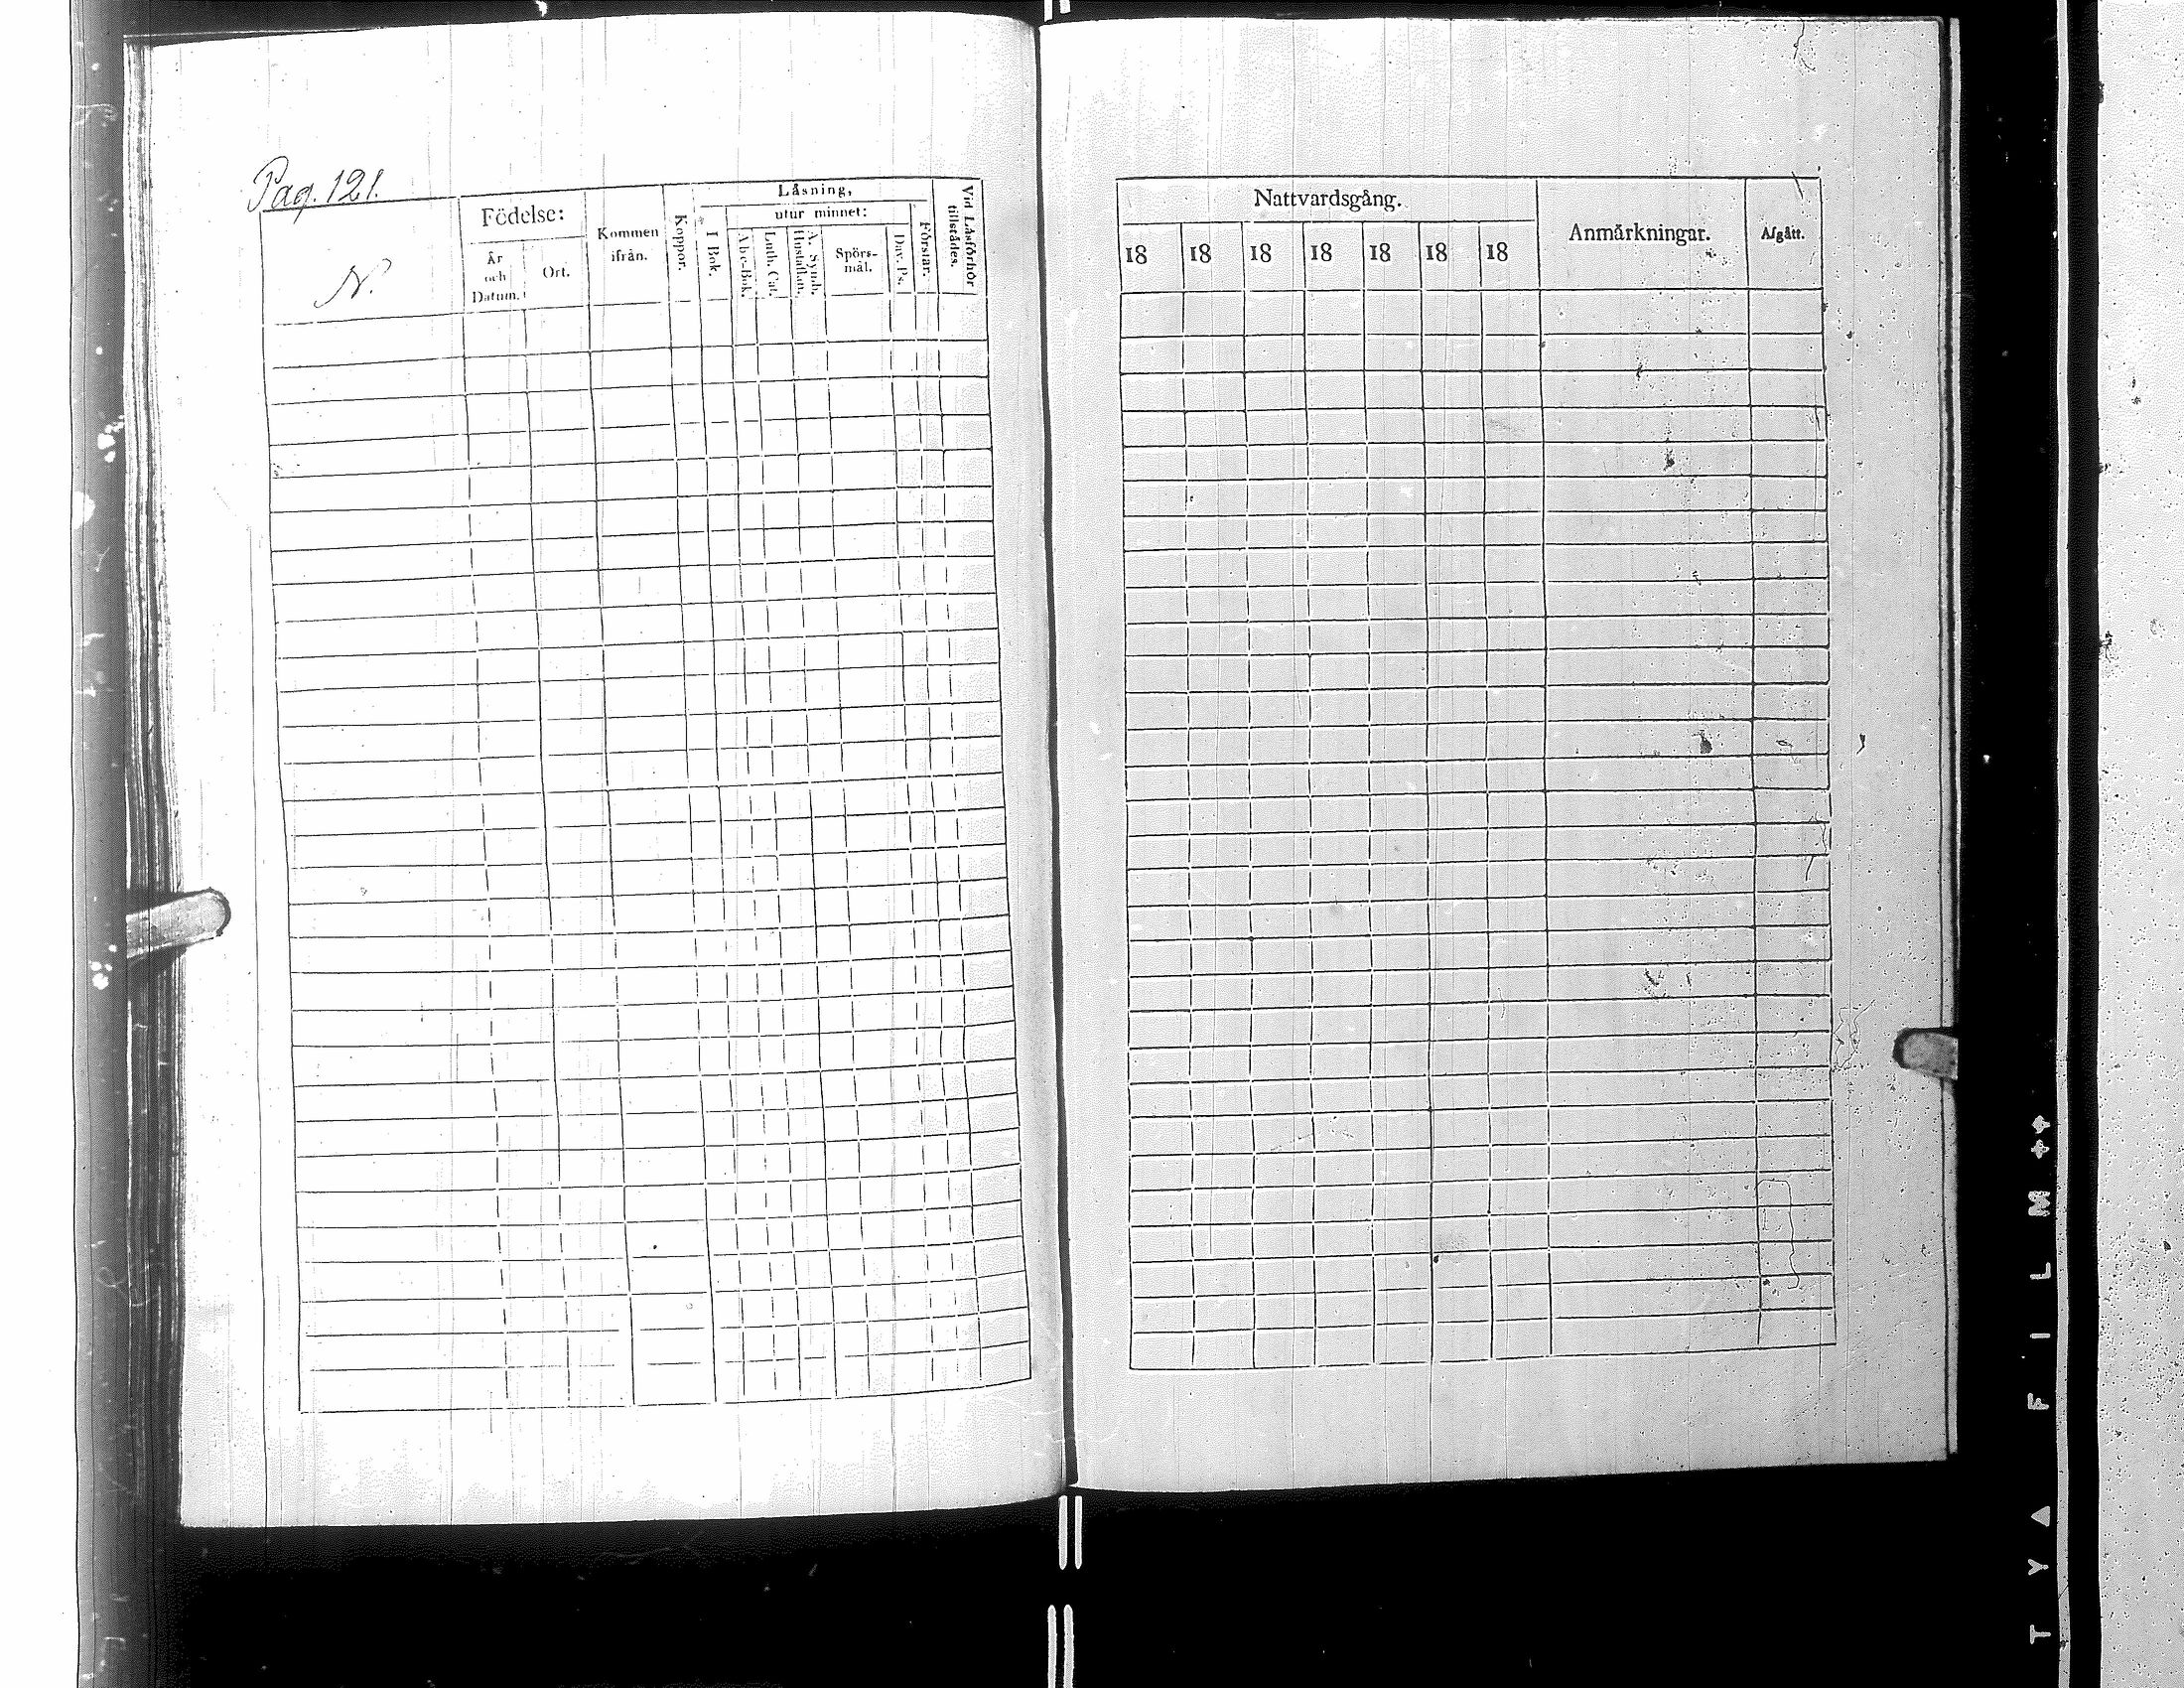 Pag. 121.
N.
Födelse:
År
och
Datum.
Ort.
Kommen
ifrån.
Koppor.
Låsning,
I Bok.
utur minnet:
Abc-Bok.
Luth. Cat.
A. Symb.
Hustafl.
Spörs-
mål.
Dav. Ps.
Förstår.
Vid Låsförhör
tillstådes.
Nattvardsgång.
18 18 18 18 18 18 18
Anmårkningar.
Afgått.
T Y A F I L M